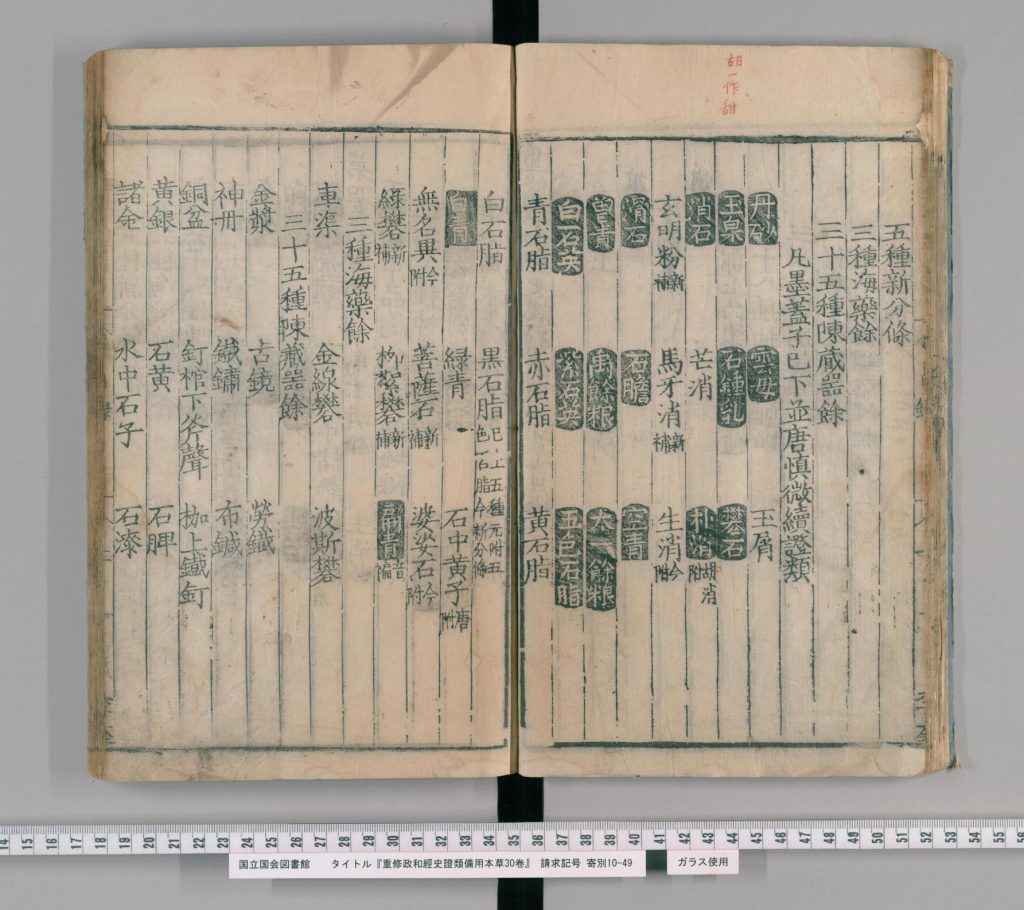 胡一作甜
五種新分條
三種海藥餘
三十五種陳藏噐餘
凡墨蓋子巳下並唐慎微續證類
丹砂 雲母 玉屑
玉泉 石鍾乳 礬石
消石 芒消 朴消胡消附
玄明粉新補 馬牙消新補 生消今附
滑石 石膽 空青
曾青 禹餘粮 太一餘粮
白石英 紫石英 五色石脂
青石脂 赤石脂 黄石脂
白石脂 黑石脂巳上五種元附五色石脂今新分條
白青 緑青 石中黄子唐附
無名異今附 菩薩石新補 婆娑石今附
綠礬新補 柳絮礬新補 扁青音褊
三種海藥餘
車渠 金線礬 波斯礬
三十五種陳藏噐餘
金漿 古鏡 勞鐵
神丹 鐵鏽 布鍼
銅盆 釘棺下斧聲 枷上鐵釘
黄銀 石黄 石脾
諸金 水中石子 石漆
14 15 16 17 18 19 20 21 22 23 24 25 26 27 28 29 30 31 32 33 34 35 36 37 38 39 40 41 42 43 44 45 46 47 48 49 50 51 52 53 54 55 56
国立国会図書館 タイトル『重修政和經史證類備用本草30卷』 請求記号 寄別10-49
ガラス使用